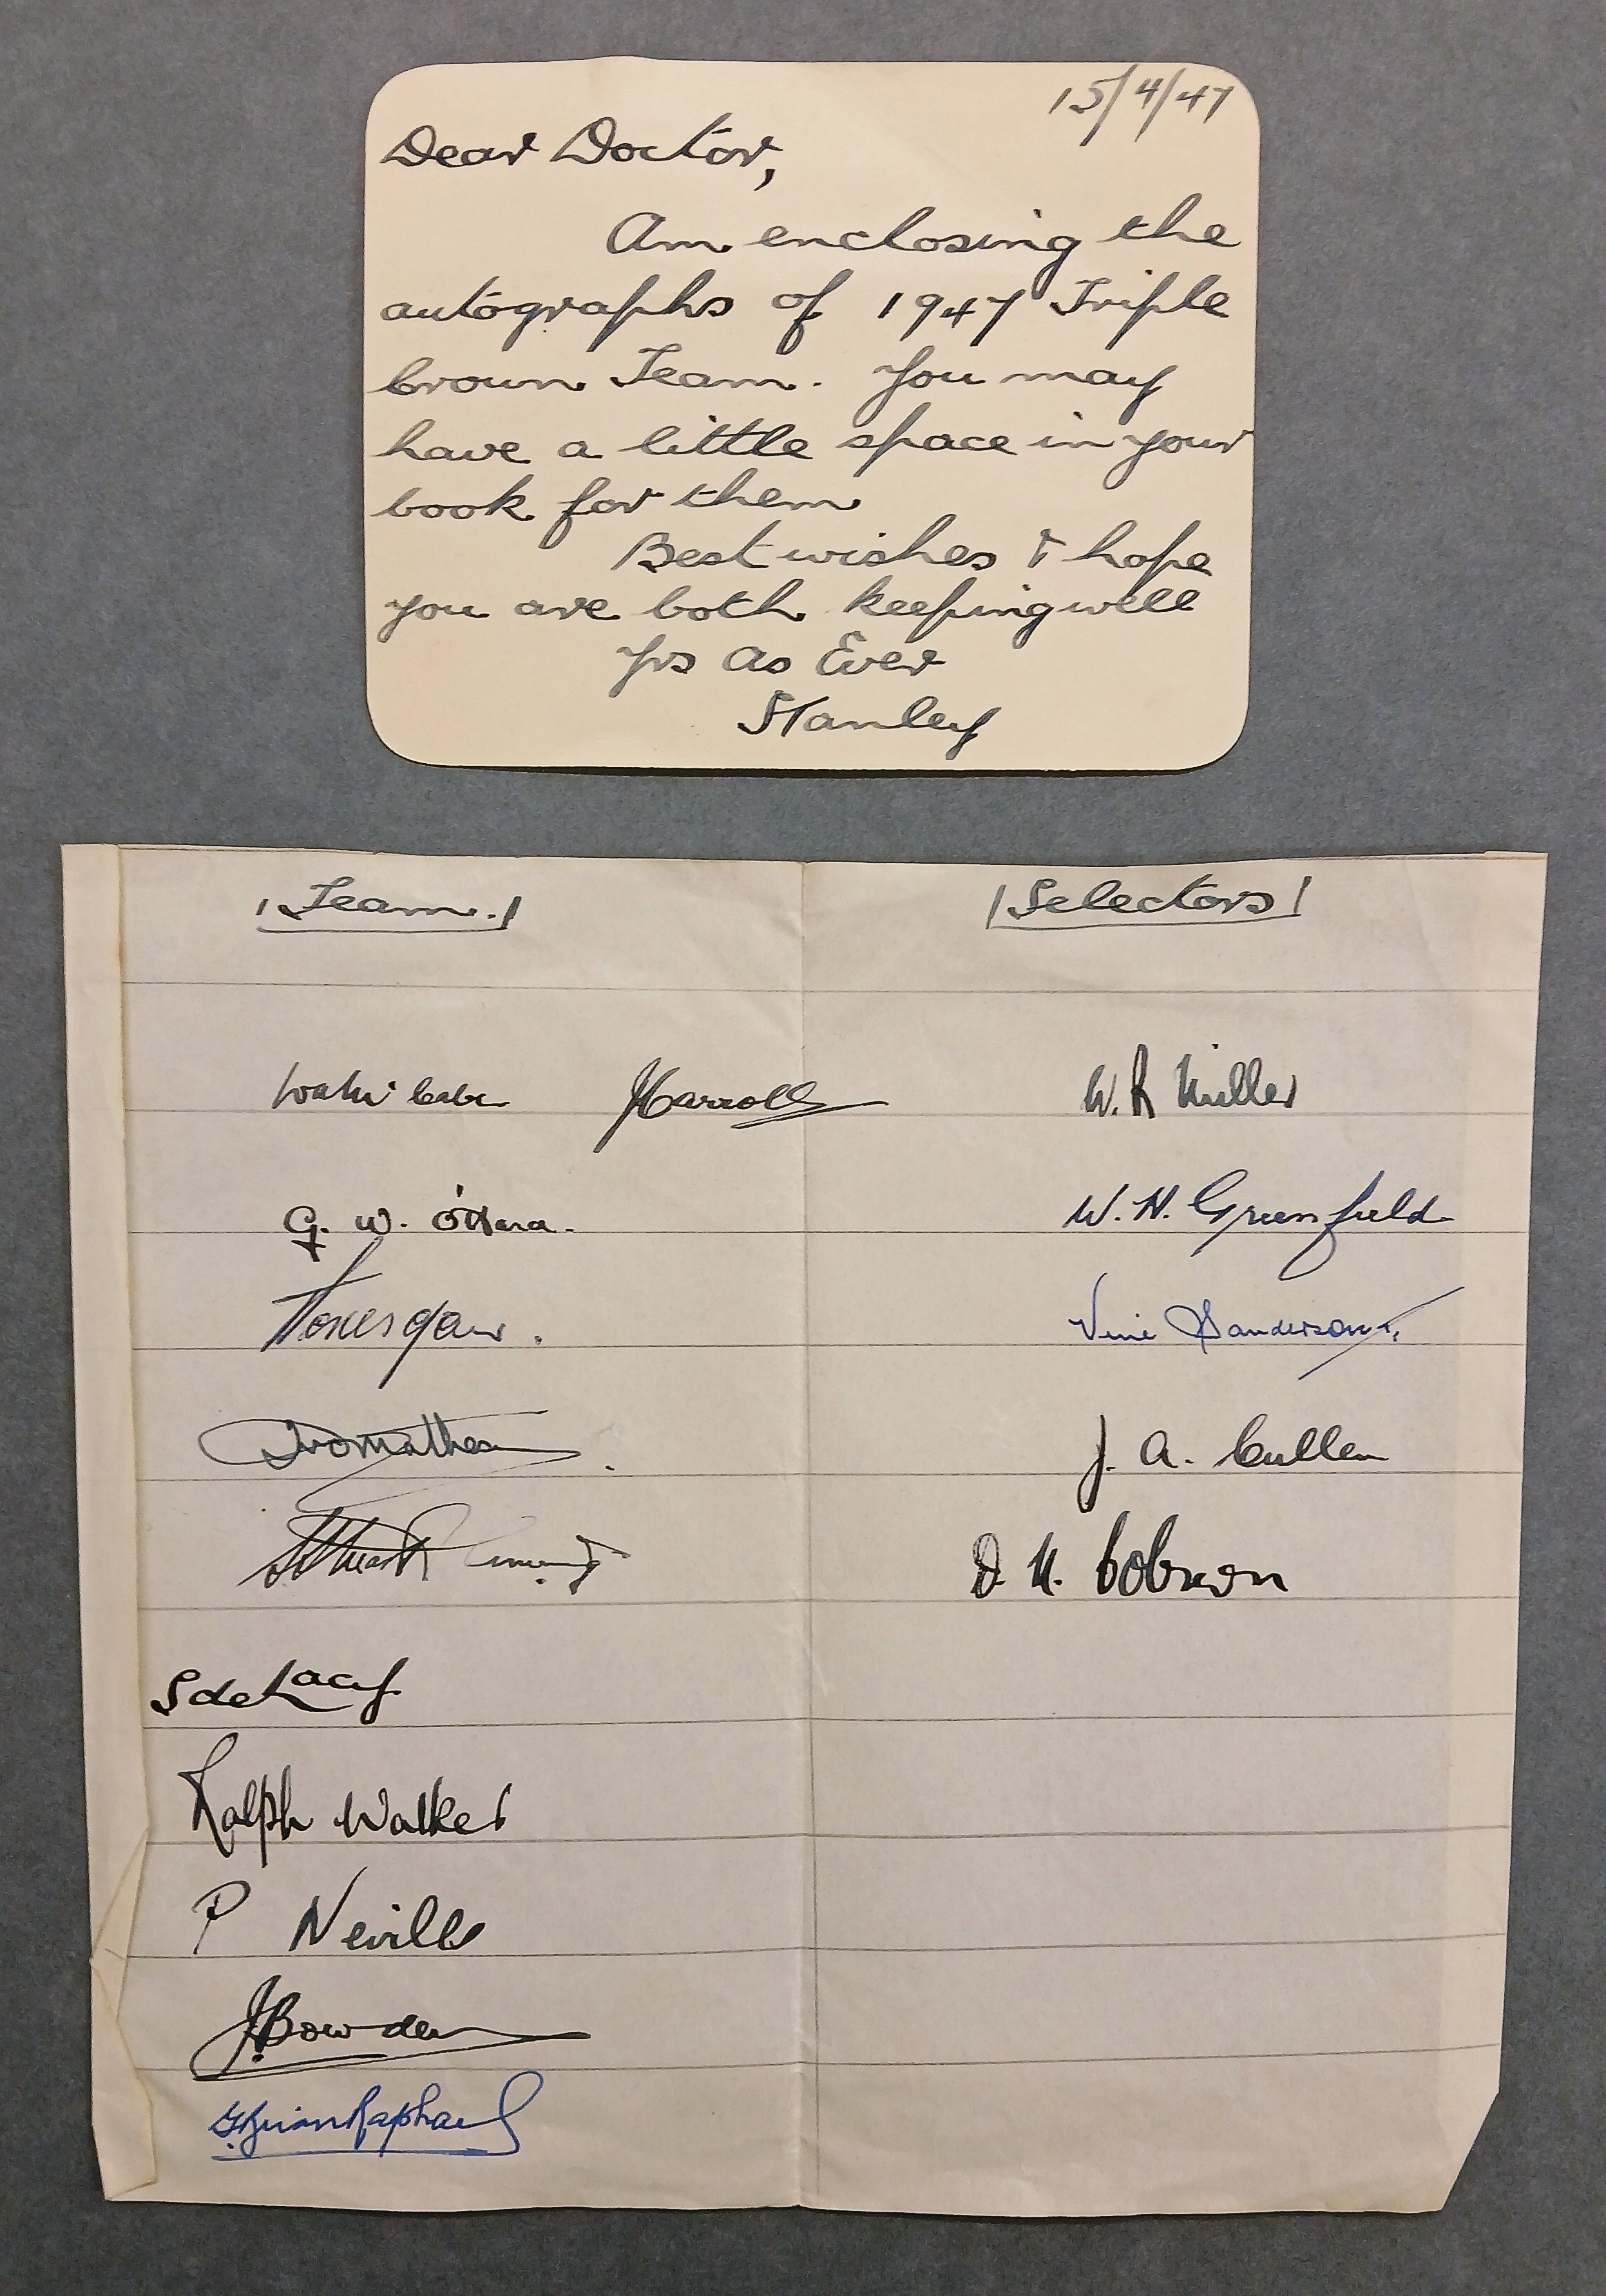 15/4/47
Dear Doctor,
Am enclosing the
autographs of 1947 Triple
Crown Team. You may
have a little space in your
book for them
Best wishes & hope
you are both keeping well
Yrs as Ever
Stanley
Team.
Selectors
JCarroll
W. R Miller
G. W. O'Hara.
W. H. Greenfield
Sanderson
J. A. Cullen
S de Lacy
Ralph Walker
P Neville
J. Bowden
G Brian Raphael